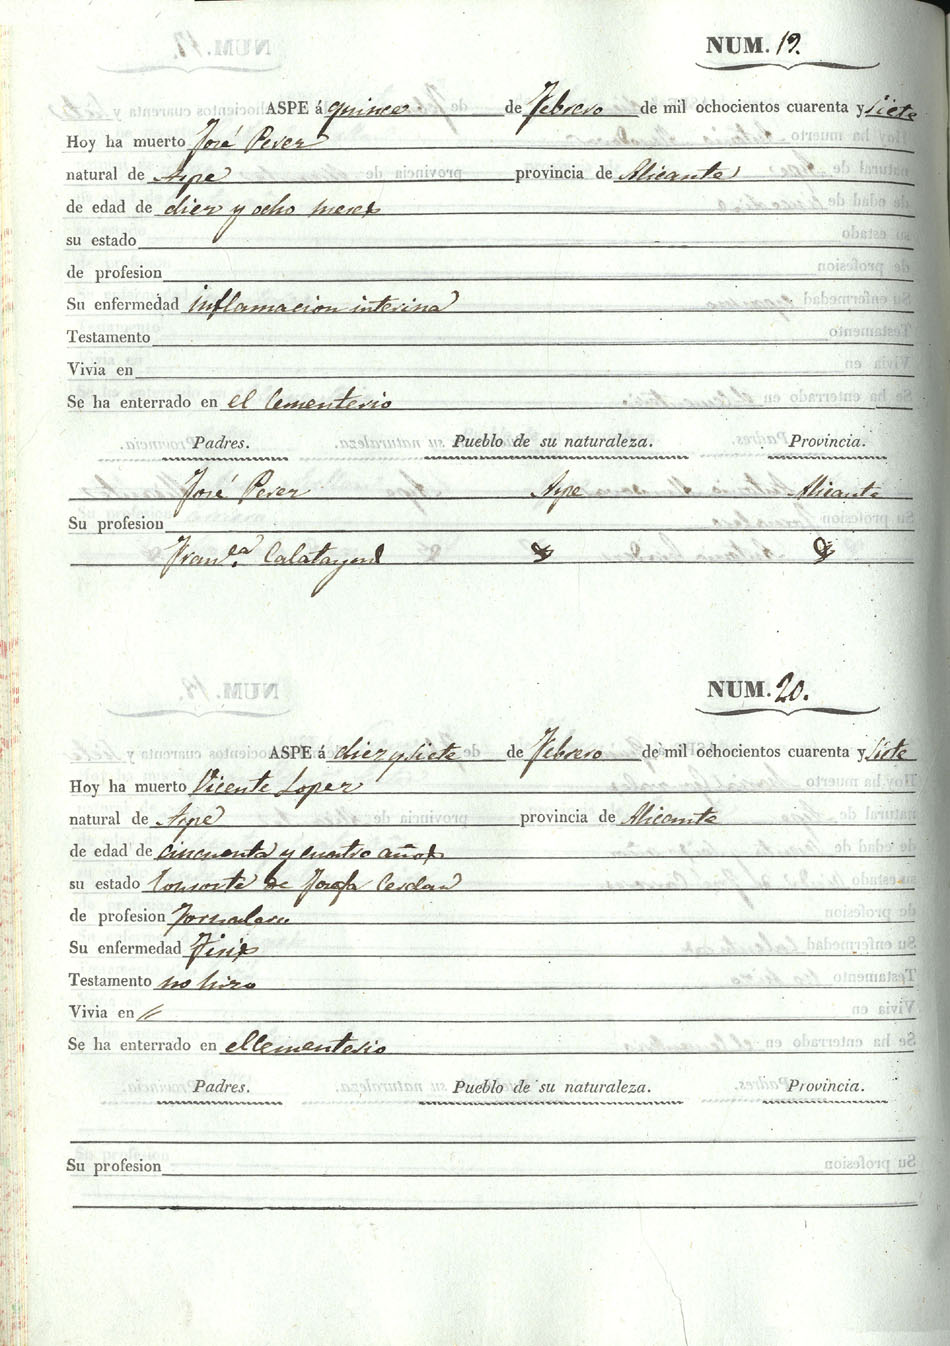 NUM. 19.
ASPE á quince de Febrero de mil ochocientos cuarenta y siete
Hoy ha muerto José Perez
natural de Aspe provincia de Alicante
de edad de diez y ocho meses
su estado
de profesion
Su enfermedad inflamacion interina
Testamento
Vivia en
Se ha enterrado en el Cementerio
Padres. Pueblo de su naturaleza. Provincia.
José Perez Aspe Alicante
Su profesion
Fran.ca Calatayud
NUM. 20.
ASPE á diez y siete de Febrero de mil ochocientos cuarenta y siete
Hoy ha muerto Vicente Lopez
natural de Aspe provincia de Alicante
de edad de cincuenta y cuatro años
su estado Consorte de Josefa Cerdan
de profesion Jornalero
Su enfermedad Tisis
Testamento no hizo
Vivia en //
Se ha enterrado en el Cementerio
Padres. Pueblo de su naturaleza. Provincia.
Su profesion